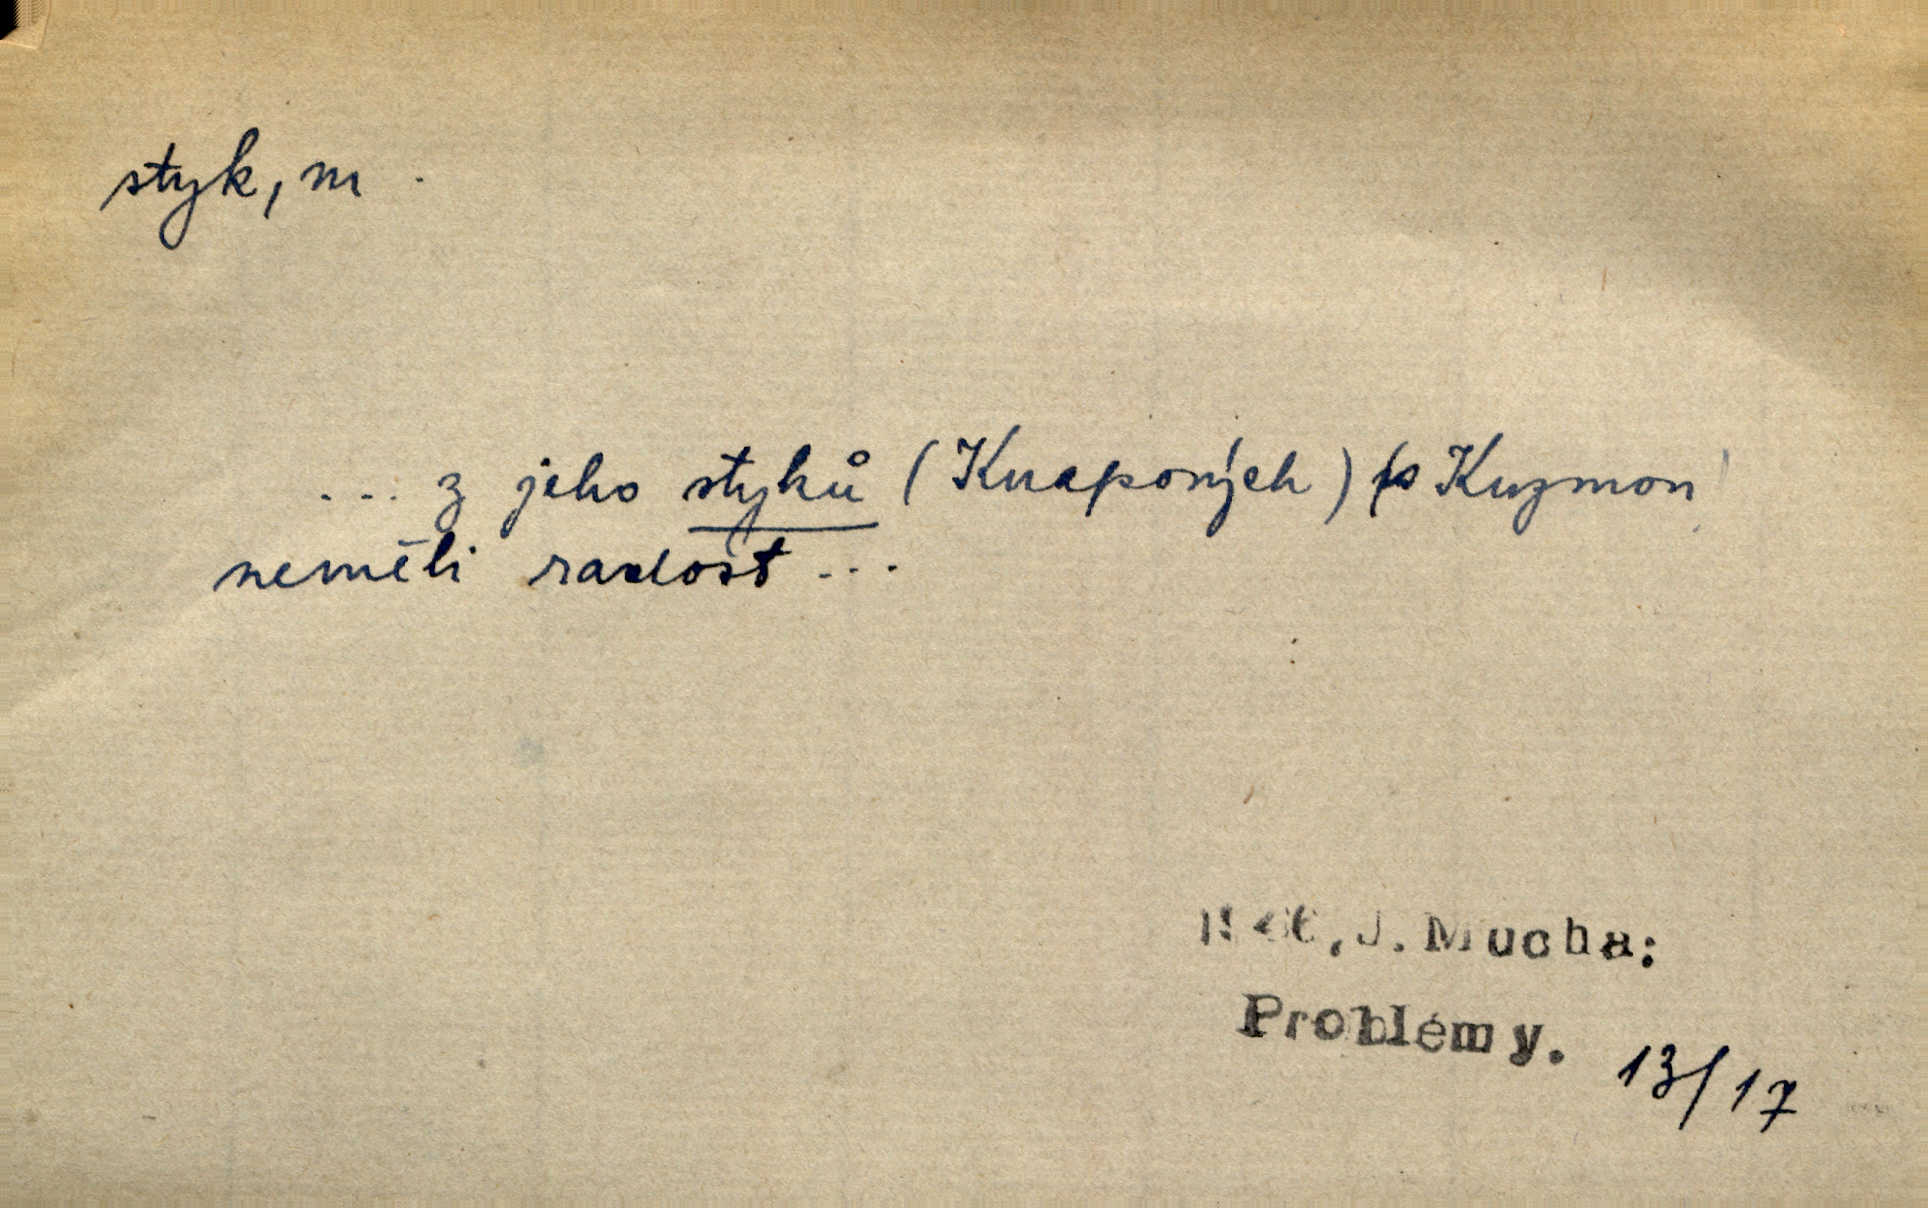 styk, m.
... z jeho styků (Knapových) s Kuzmou
neměli radost ...
1946, J. Mucha:
Problémy.
13/17